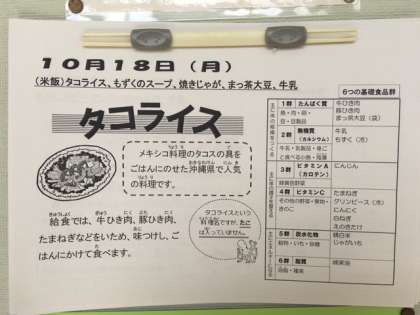 10月18日(月)
(米飯)タコライス、もずくのスープ、焼きじゃが、まっ茶大豆、牛乳
タコライス
メキシコ料理のタコスの具を
ごはんにのせた沖縄県で人気
の料理です。
給食では、牛ひき肉、豚ひき肉、
たまねぎなどをいため、味つけし、ご
はんにかけて食べます。
タコライスという
料理名ですが、たこは
入っていません。
6つの基礎食品群
1群 たんぱく質
魚・肉・卵・
豆・豆製品
牛ひき肉
豚ひき肉
まっ茶大豆(袋)
2群 無機質
(カルシウム)
牛乳・乳製品・骨ご
と食べる小魚・海藻
牛乳
もずく(冷)
3群 ビタミンA
(カロテン)
緑黄色野菜
にんじん
4群 ビタミンC
その他の野菜・果物・
きのこ
たまねぎ
グリンピース(冷)
にんにく
白ねぎ
えのきたけ
5群 炭水化物
穀物・いも・砂糖
精白米
じゃがいも
6群 脂質
油脂・種実